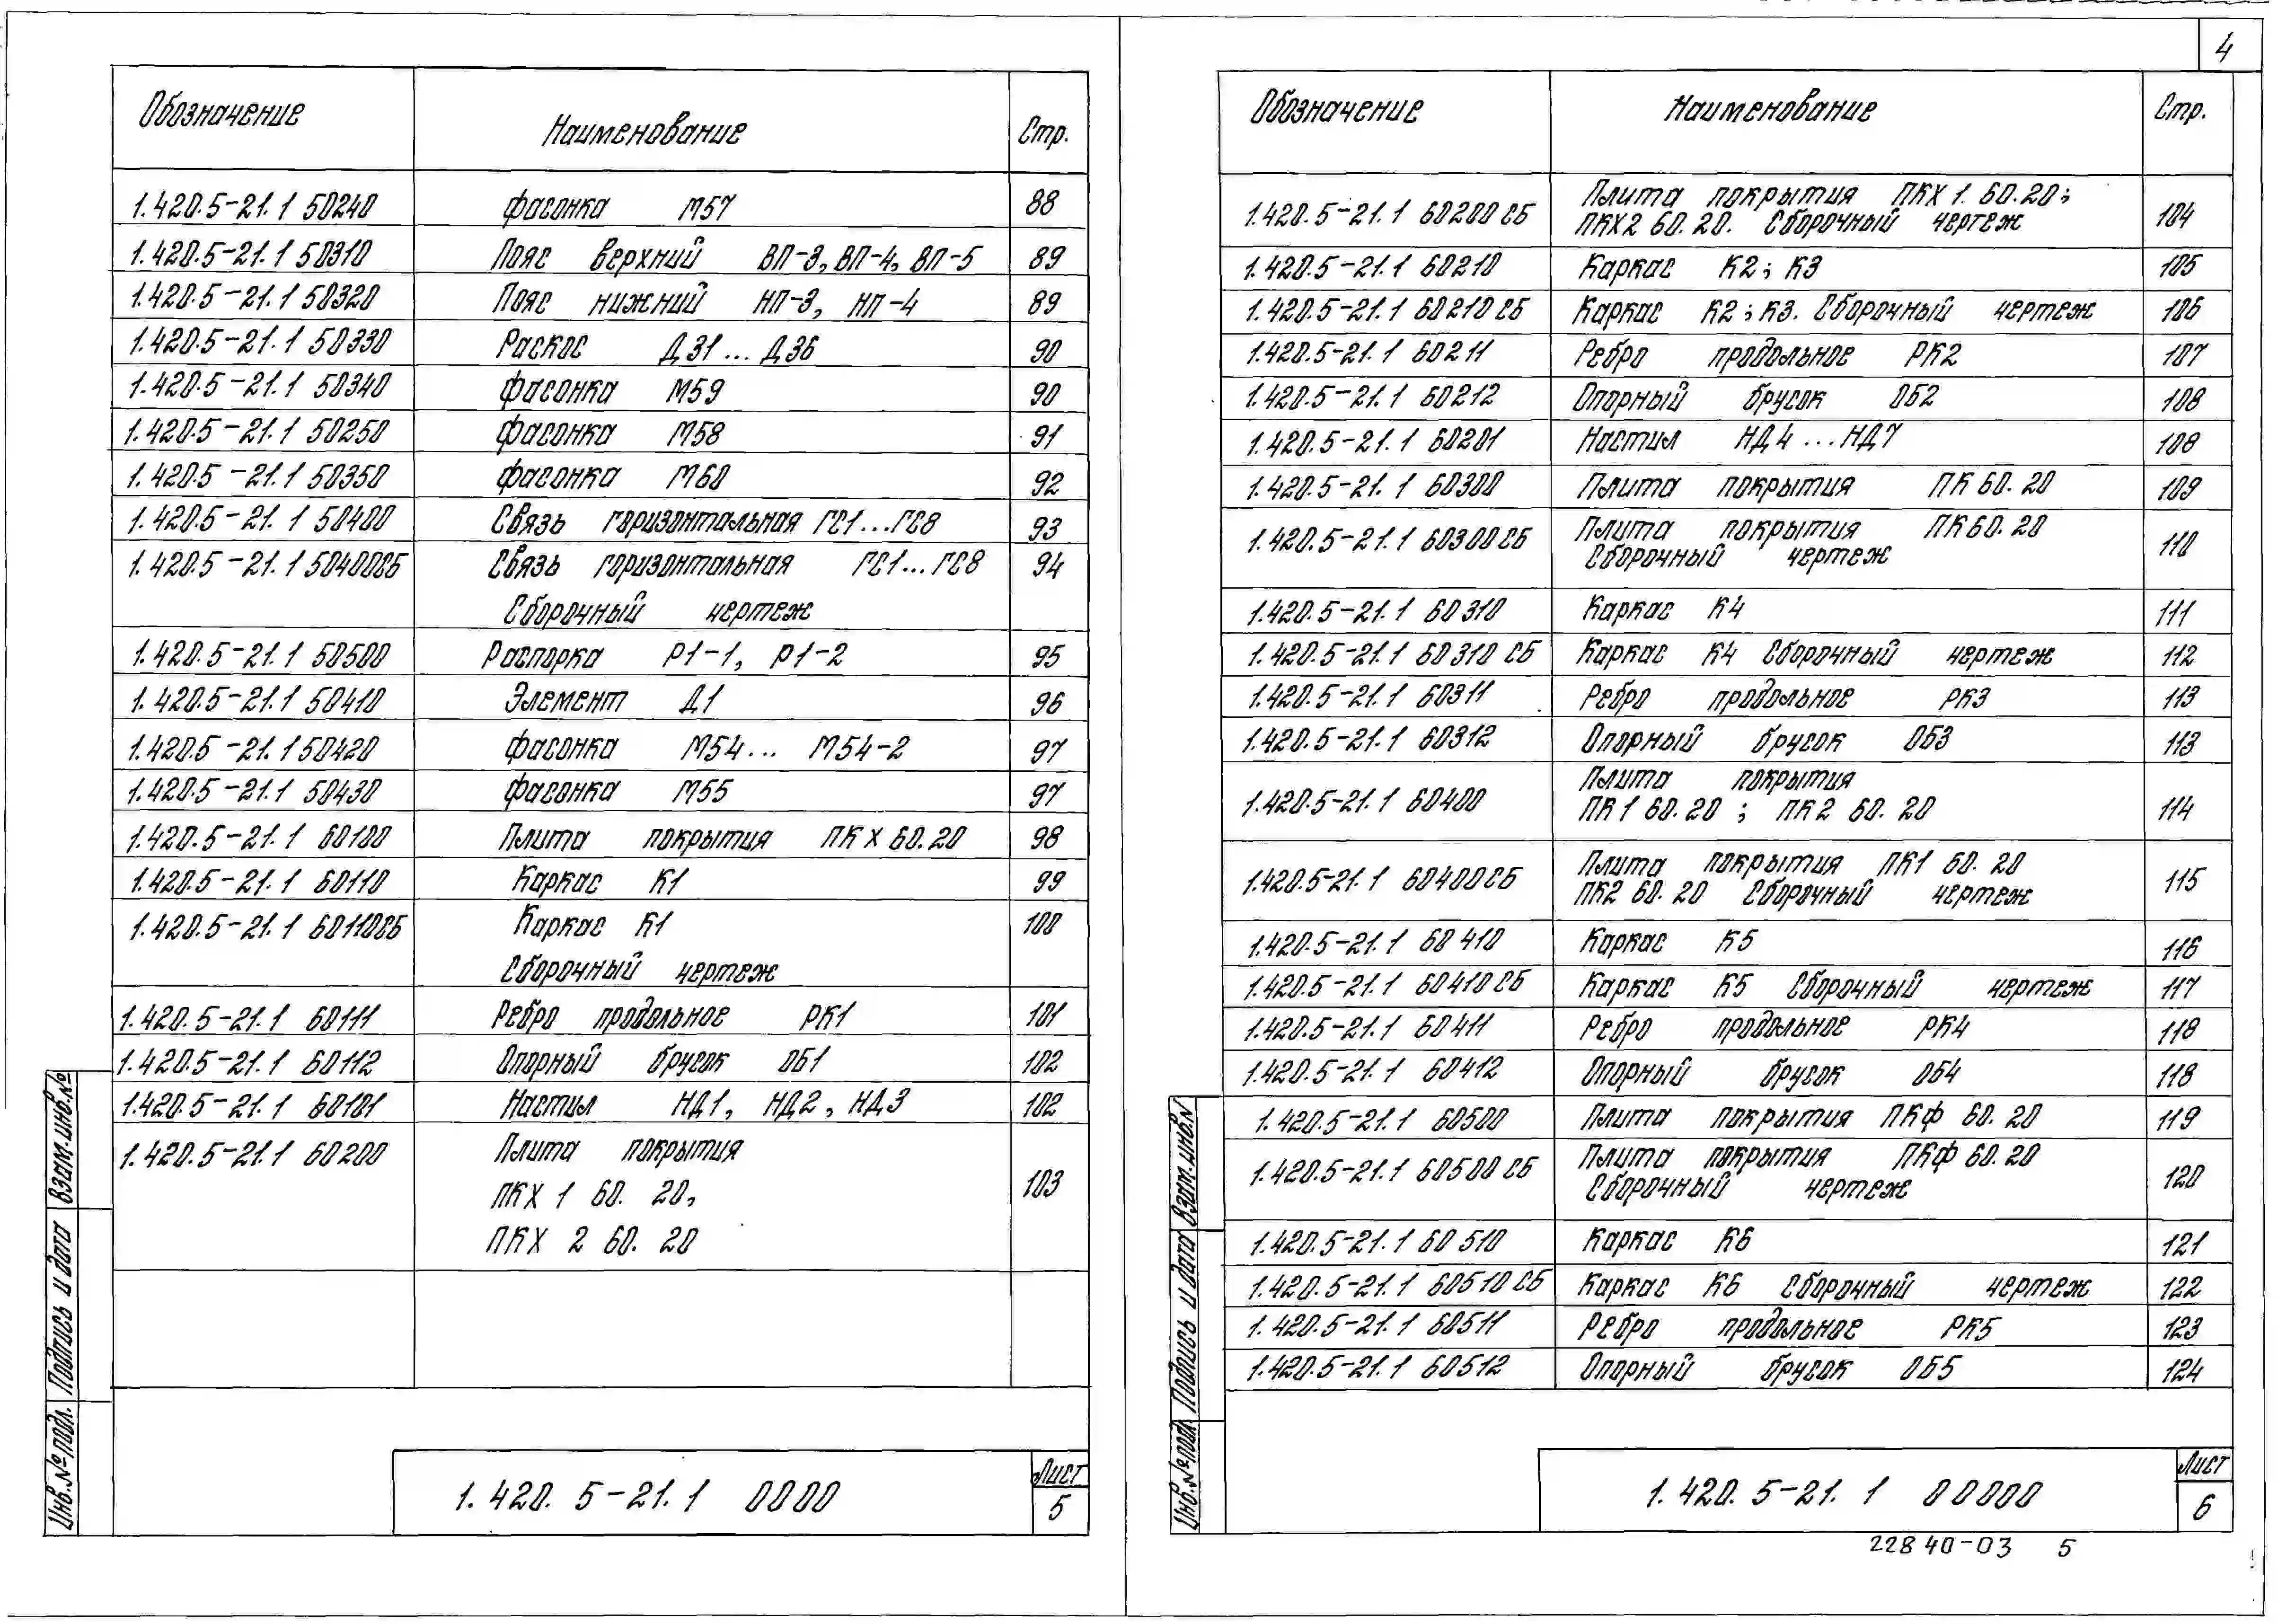 4
Обозначение Наименование Стр.
1.420.5-21.1 50240 Фасонка М57 88
1.420.5-21.1 50310 Пояс верхний ВП-3, ВП-4, ВП-5 89
1.420.5-21.1 50320 Пояс нижний НП-3, НП-4 89
1.420.5-21.1 50330 Раскос Д31...Д36 90
1.420.5-21.1 50340 Фасонка М59 90
1.420.5-21.1 50250 Фасонка М58 91
1.420.5-21.1 50350 Фасонка М60 92
1.420.5-21.1 50400 Связь горизонтальная ГС1...ГС8 93
1.420.5-21.1 50400СБ Связь горизонтальная ГС1...ГС8 94
Сборочный чертеж
1.420.5-21.1 50500 Распорка Р1-1, Р1-2 95
1.420.5-21.1 50410 Элемент Д1 96
1.420.5-21.1 50420 Фасонка М54... М54-2 97
1.420.5-21.1 50430 Фасонка М55 97
1.420.5-21.1 60100 Плита покрытия ПКХ 60.20 98
1.420.5-21.1 60110 Каркас К1 99
1.420.5-21.1 60110СБ Каркас К1 100
Сборочный чертеж
1.420.5-21.1 60111 Ребро продольное РК1 101
1.420.5-21.1 60112 Опорный брусок ОБ1 102
1.420.5-21.1 60101 Настил НД1, НД2, НД3 102
1.420.5-21.1 60200 Плита покрытия
ПКХ 1 60. 20, 103
ПКХ 2 60. 20
Инв.№подл. Подпись и дата Взам.инв.№
1.420.5-21.1 0000
Лист
5
Обозначение Наименование Стр.
1.420.5-21.1 60200СБ Плита покрытия ПКХ 1. 60.20;
ПКХ2 60.20. Сборочный чертеж 104
1.420.5-21.1 60210 Каркас К2; К3 105
1.420.5-21.1 60210СБ Каркас К2; К3. Сборочный чертеж 106
1.420.5-21.1 60211 Ребро продольное РК2 107
1.420.5-21.1 60212 Опорный брусок ОБ2 108
1.420.5-21.1 60201 Настил НД4...НД7 108
1.420.5-21.1 60300 Плита покрытия ПК 60. 20 109
1.420.5-21.1 60300СБ Плита покрытия ПК 60. 20
Сборочный чертеж 110
1.420.5-21.1 60310 Каркас К4 111
1.420.5-21.1 60310 СБ Каркас К4 Сборочный чертеж 112
1.420.5-21.1 60311 Ребро продольное РК3 113
1.420.5-21.1 60312 Опорный брусок ОБ3 113
1.420.5-21.1 60400 Плита покрытия
ПК 1 60.20 ; ПК 2 60. 20 114
1.420.5-21.1 60400СБ Плита покрытия ПК1 60. 20
ПК2 60. 20 Сборочный чертеж 115
1.420.5-21.1 60410 Каркас К5 116
1.420.5-21.1 60410СБ Каркас К5 Сборочный чертеж 117
1.420.5-21.1 60411 Ребро продольное РК4 118
1.420.5-21.1 60412 Опорный брусок ОБ4 118
1.420.5-21.1 60500 Плита покрытия ПКФ 60. 20 119
1.420.5-21.1 60500 СБ Плита покрытия ПКФ 60. 20
Сборочный чертеж 120
1.420.5-21.1 60510 Каркас К6 121
1.420.5-21.1 60510 СБ Каркас К6 Сборочный чертеж 122
1.420.5-21.1 60511 Ребро продольное РК5 123
1.420.5-21.1 60512 Опорный брусок ОБ5 124
Инв.№подл. Подпись и дата Взам.инв.N
1.420.5-21.1 00000
Лист
6
22840-03 5